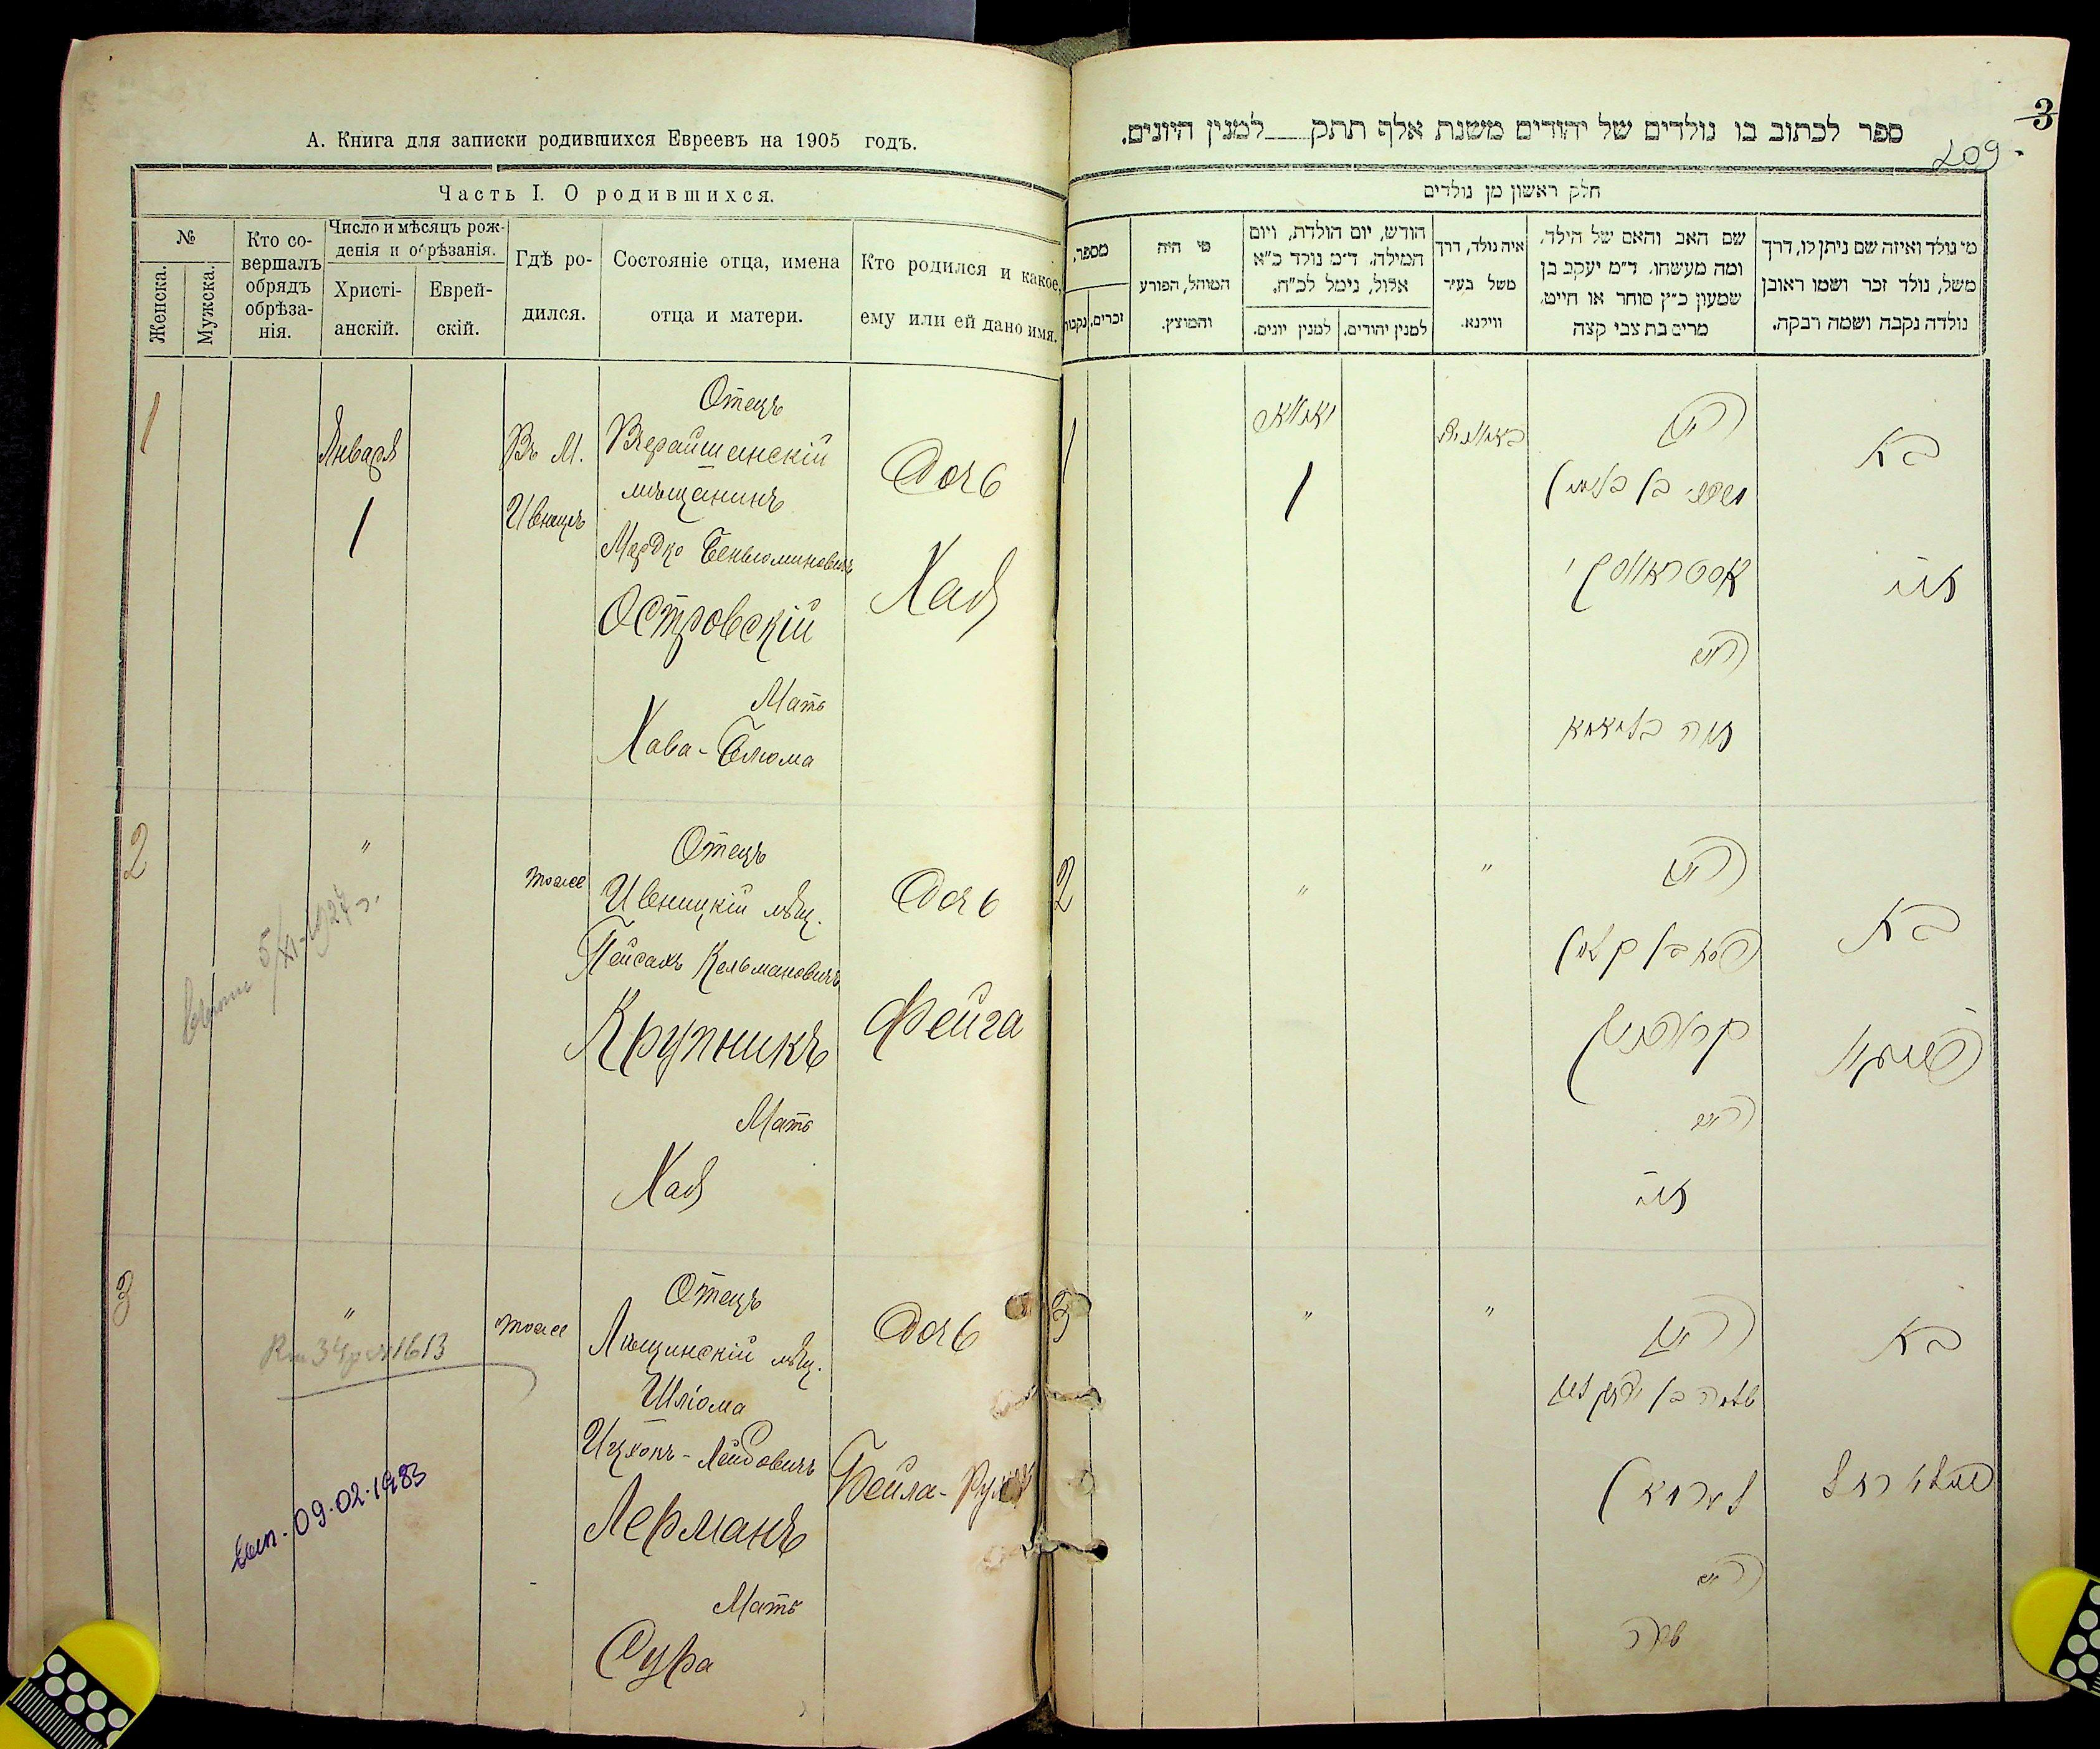 А. Книга для записки родившихся Евреевъ на 1905 годъ.
Часть I. О родившихся.
№
Женска.
Мужска.
Кто со-
вершалъ
обрядъ
обрѣза-
нія.
Число и мѣсяцъ рож-
денія и обрѣзанія.
Христі-
анскій.
Еврей-
скій.
Гдѣ ро-
дился.
Состояніе отца, имена
отца и матери.
Кто родился и какое,
ему или ей дано имя.
1
Января
1
Въ М.
Ивенцѣ
Отецъ
мѣщанинъ
Мордко Беньюминовичъ
Островскій
Мать
Хава-Блюма
Дочь
Хая
2
"
тоже
Отецъ
Ивеницкій мѣщ.
Пейсахъ Кельмановичъ
Крупникъ
Мать
Хая
Дочь
Фейга
5/XI-1927 г.
3
"
тоже
Отецъ
мѣщ.
Шліома
Ицхокъ-Лейбовичъ
Лерманъ
Мать
Сура
Дочь
Бейла-
1613
вып. 09.02.1983
3
209
ספר לכתוב בו נולדים של יהודים משנת אלף תתק למנין היונים.
חלק ראשון מן נולדים
מספר,
זכרים,
נקבות
מי היה
המוהל, הפורע
והמוצץ.
חודש, יום הולדת, ויום
המילה. ד״מ נולד כ״א
אלול, נימל לכ״ח,
למנין יונים.
למנין יהודים.
איה נולד, דרך
משל בעיר
ווילנא.
שם האב והאם של הילד,
ומה מעשהו. ד״מ יעקב בן
שמעון כ״ץ סוחר או חייט,
מרים בת צבי קצה
מי נולד ואיזה שם ניתן לו, דרך
משל, נולד זכר ושמו ראובן
נולדה נקבה ושמה רבקה.
1
יאנואר
1
האב
בת
אסטראווסקי
האם
חוה בליומא
חיה
2
"
"
האב
פסח בן קלמן
קרופניק
האם
חיה
בת
פייגא
3
"
"
האב
שלמה בן
לערמאן
האם
שרה
בת